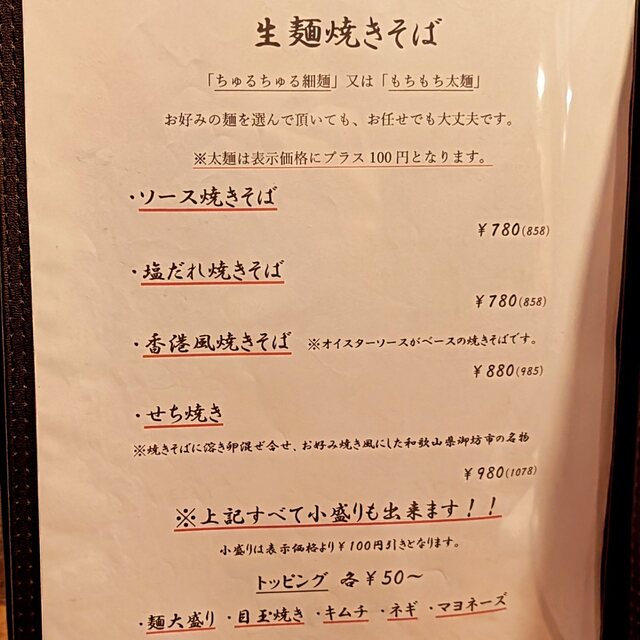 生麺焼きそば
「ちゅるちゅる細麺」又は「もちもち太麺」
お好みの麺を選んで頂いても、お任せでも大丈夫です。
※太麺は表示価格にプラス100円となります。
・ソース焼きそば
¥780(858)
・塩だれ焼きそば
¥780(858)
・香港風焼きそば ※オイスターソースがベースの焼きそばです。
¥880(985)
・せち焼き
※焼きそばに溶き卵混ぜ合せ、お好み焼き風にした和歌山県御坊市の名物
¥980(1078)
※上記すべて小盛りも出来ます！！
小盛りは表示価格より¥100円引きとなります。
トッピング 各¥50〜
・麺大盛り ・目玉焼き ・キムチ ・ネギ ・マヨネーズ